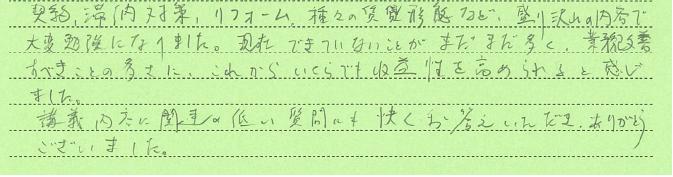 契約、滞納対策、リフォーム、種々の賃貸形態など、盛り沢山の内容で
大変勉強になりました。現在できていないことがまだまだ多く、業務改善
すべきことの多さに、これからいくらでも収益性を高められると感じ
ました。
講義内容に関連の低い質問にも快くお答えいただき、ありがとう
ございました。